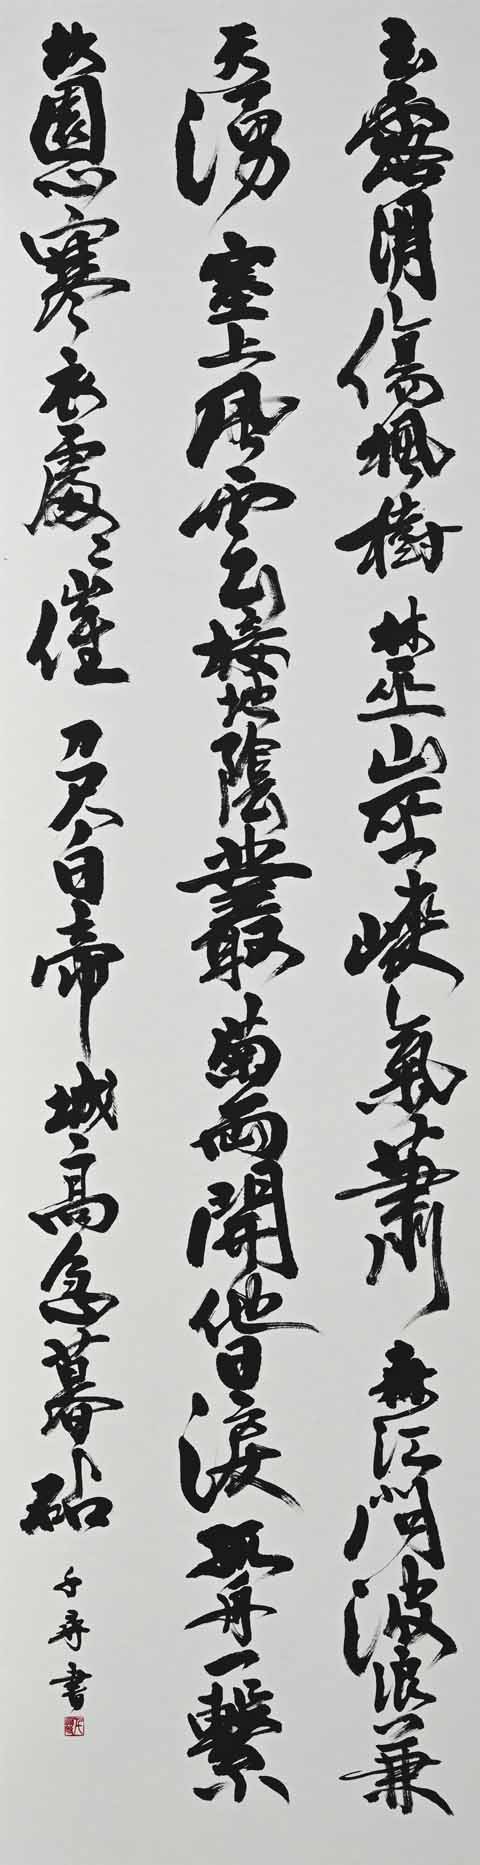 玉露凋傷楓樹林巫山巫峽氣蕭森江間波浪兼
天湧塞上風雲接地陰叢菊兩開他日淚孤舟一繫
故園心寒衣處々催刀尺白帝城高急暮砧
千尋書